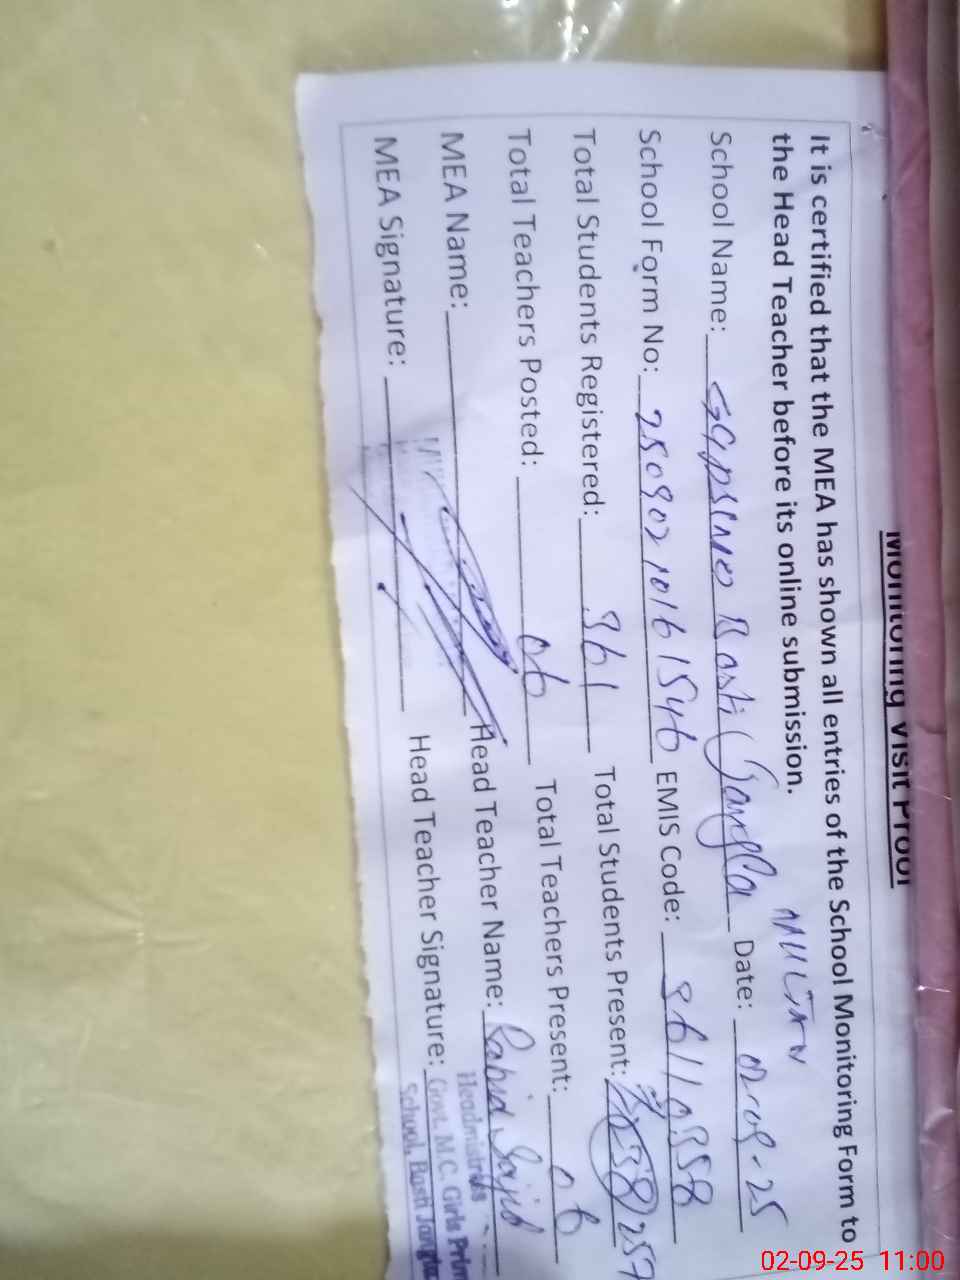 Monitoring Visit Proof
It is certified that the MEA has shown all entries of the School Monitoring Form to
the Head Teacher before its online submission.
MULTAN
School Name: Basti Date: 02-09-25
School Form No: EMIS Code:
Total Students Registered: 361 Total Students Present: 257
Total Teachers Posted: 06 Total Teachers Present: 06
MEA Name: Head Teacher Name:
MEA Signature: Head Teacher Signature:
Headmistress
Govt. M.C. Girls Prim
School, Basti Jangla
02-09-25 11:00